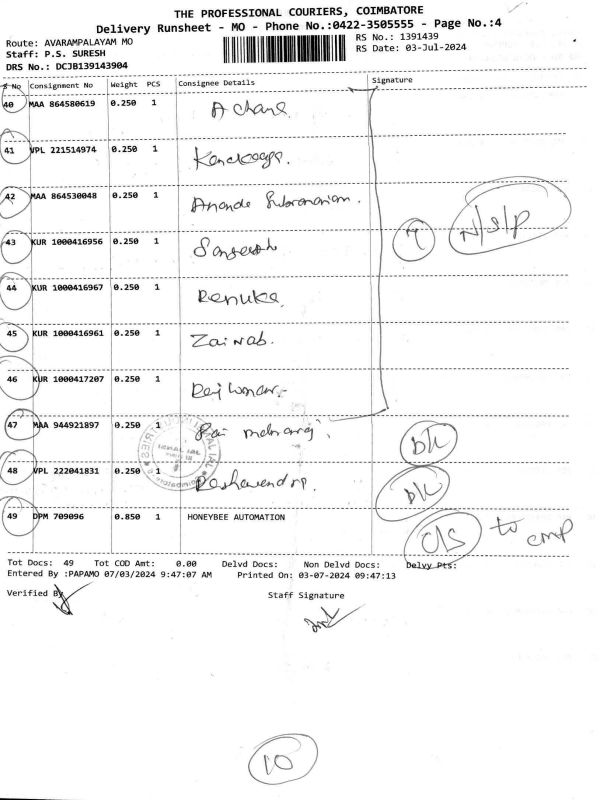 THE PROFESSIONAL COURIERS, COIMBATORE
Delivery Runsheet - MO - Phone No.:0422-3505555 - Page No.:4
Route: AVARAMPALAYAM MO RS No.: 1391439
Staff: P.S. SURESH RS Date: 03-Jul-2024
DRS No.: DCJB139143904
S No Consignment No Weight PCS Consignee Details Signature
40 MAA 864580619 0.250 1
41 VPL 221514974 0.250 1
42 MAA 864530048 0.250 1 Ananda Subramaniam.
43 KUR 1000416956 0.250 1
7 N/S/P
44 KUR 1000416967 0.250 1 Renuka
45 KUR 1000416961 0.250 1 Zainab.
46 KUR 1000417207 0.250 1
47 MAA 944921897 0.250 1
48 VPL 222041831 0.250 1
49 DPM 709096 0.850 1 HONEYBEE AUTOMATION
C/S to cmp
Tot Docs: 49 Tot COD Amt: 0.00 Delvd Docs: Non Delvd Docs: Delvy Pts:
Entered By :PAPAMO 07/03/2024 9:47:07 AM Printed On: 03-07-2024 09:47:13
Verified By Staff Signature
10